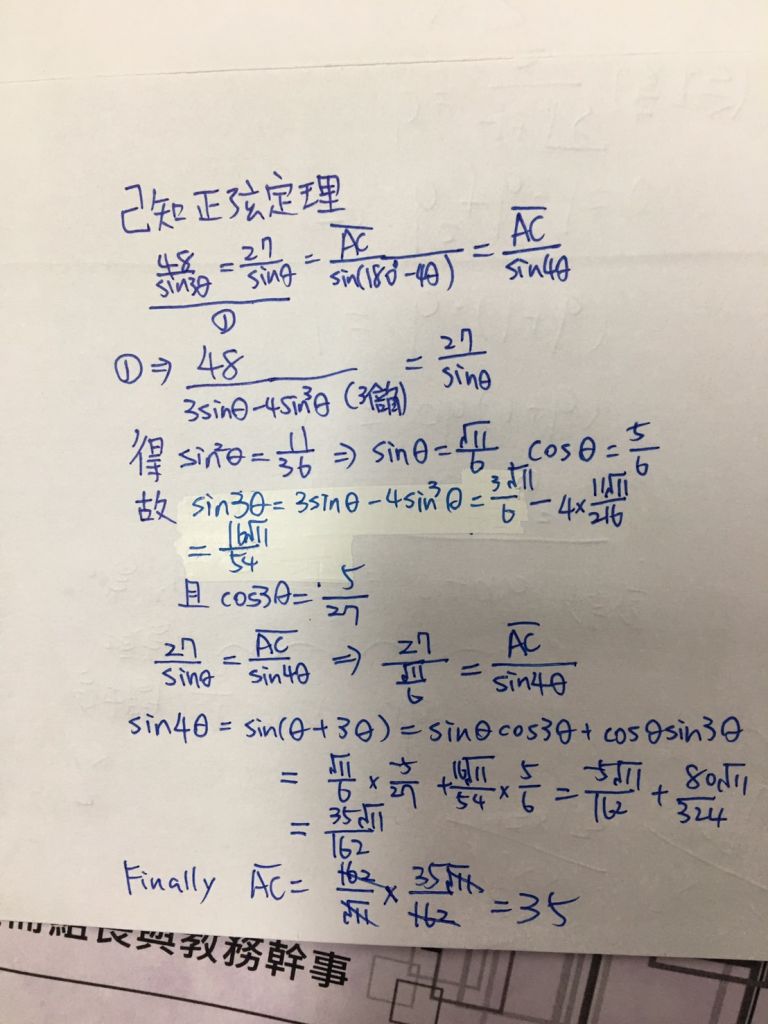 己知正弦定理
48/sin3θ = 27/sinθ = AC/sin(180°-4θ) = AC/sin4θ
①
①⇒ 48/(3sinθ-4sin³θ) (3倍角) = 27/sinθ
得 sin²θ = 11/36 ⇒ sinθ = √11/6 cosθ = 5/6
故 sin3θ = 3sinθ - 4sin³θ = 3√11/6 - 4×11√11/216
= 16√11/54
且 cos3θ = -5/27
27/sinθ = AC/sin4θ ⇒ 27/(√11/6) = AC/sin4θ
sin4θ = sin(θ+3θ) = sinθcos3θ + cosθsin3θ
= √11/6 × -5/27 + 16√11/54 × 5/6 = -5√11/162 + 80√11/324
= 35√11/162
Finally AC = 162/√11 × 35√11/162 = 35
組長與教務幹事